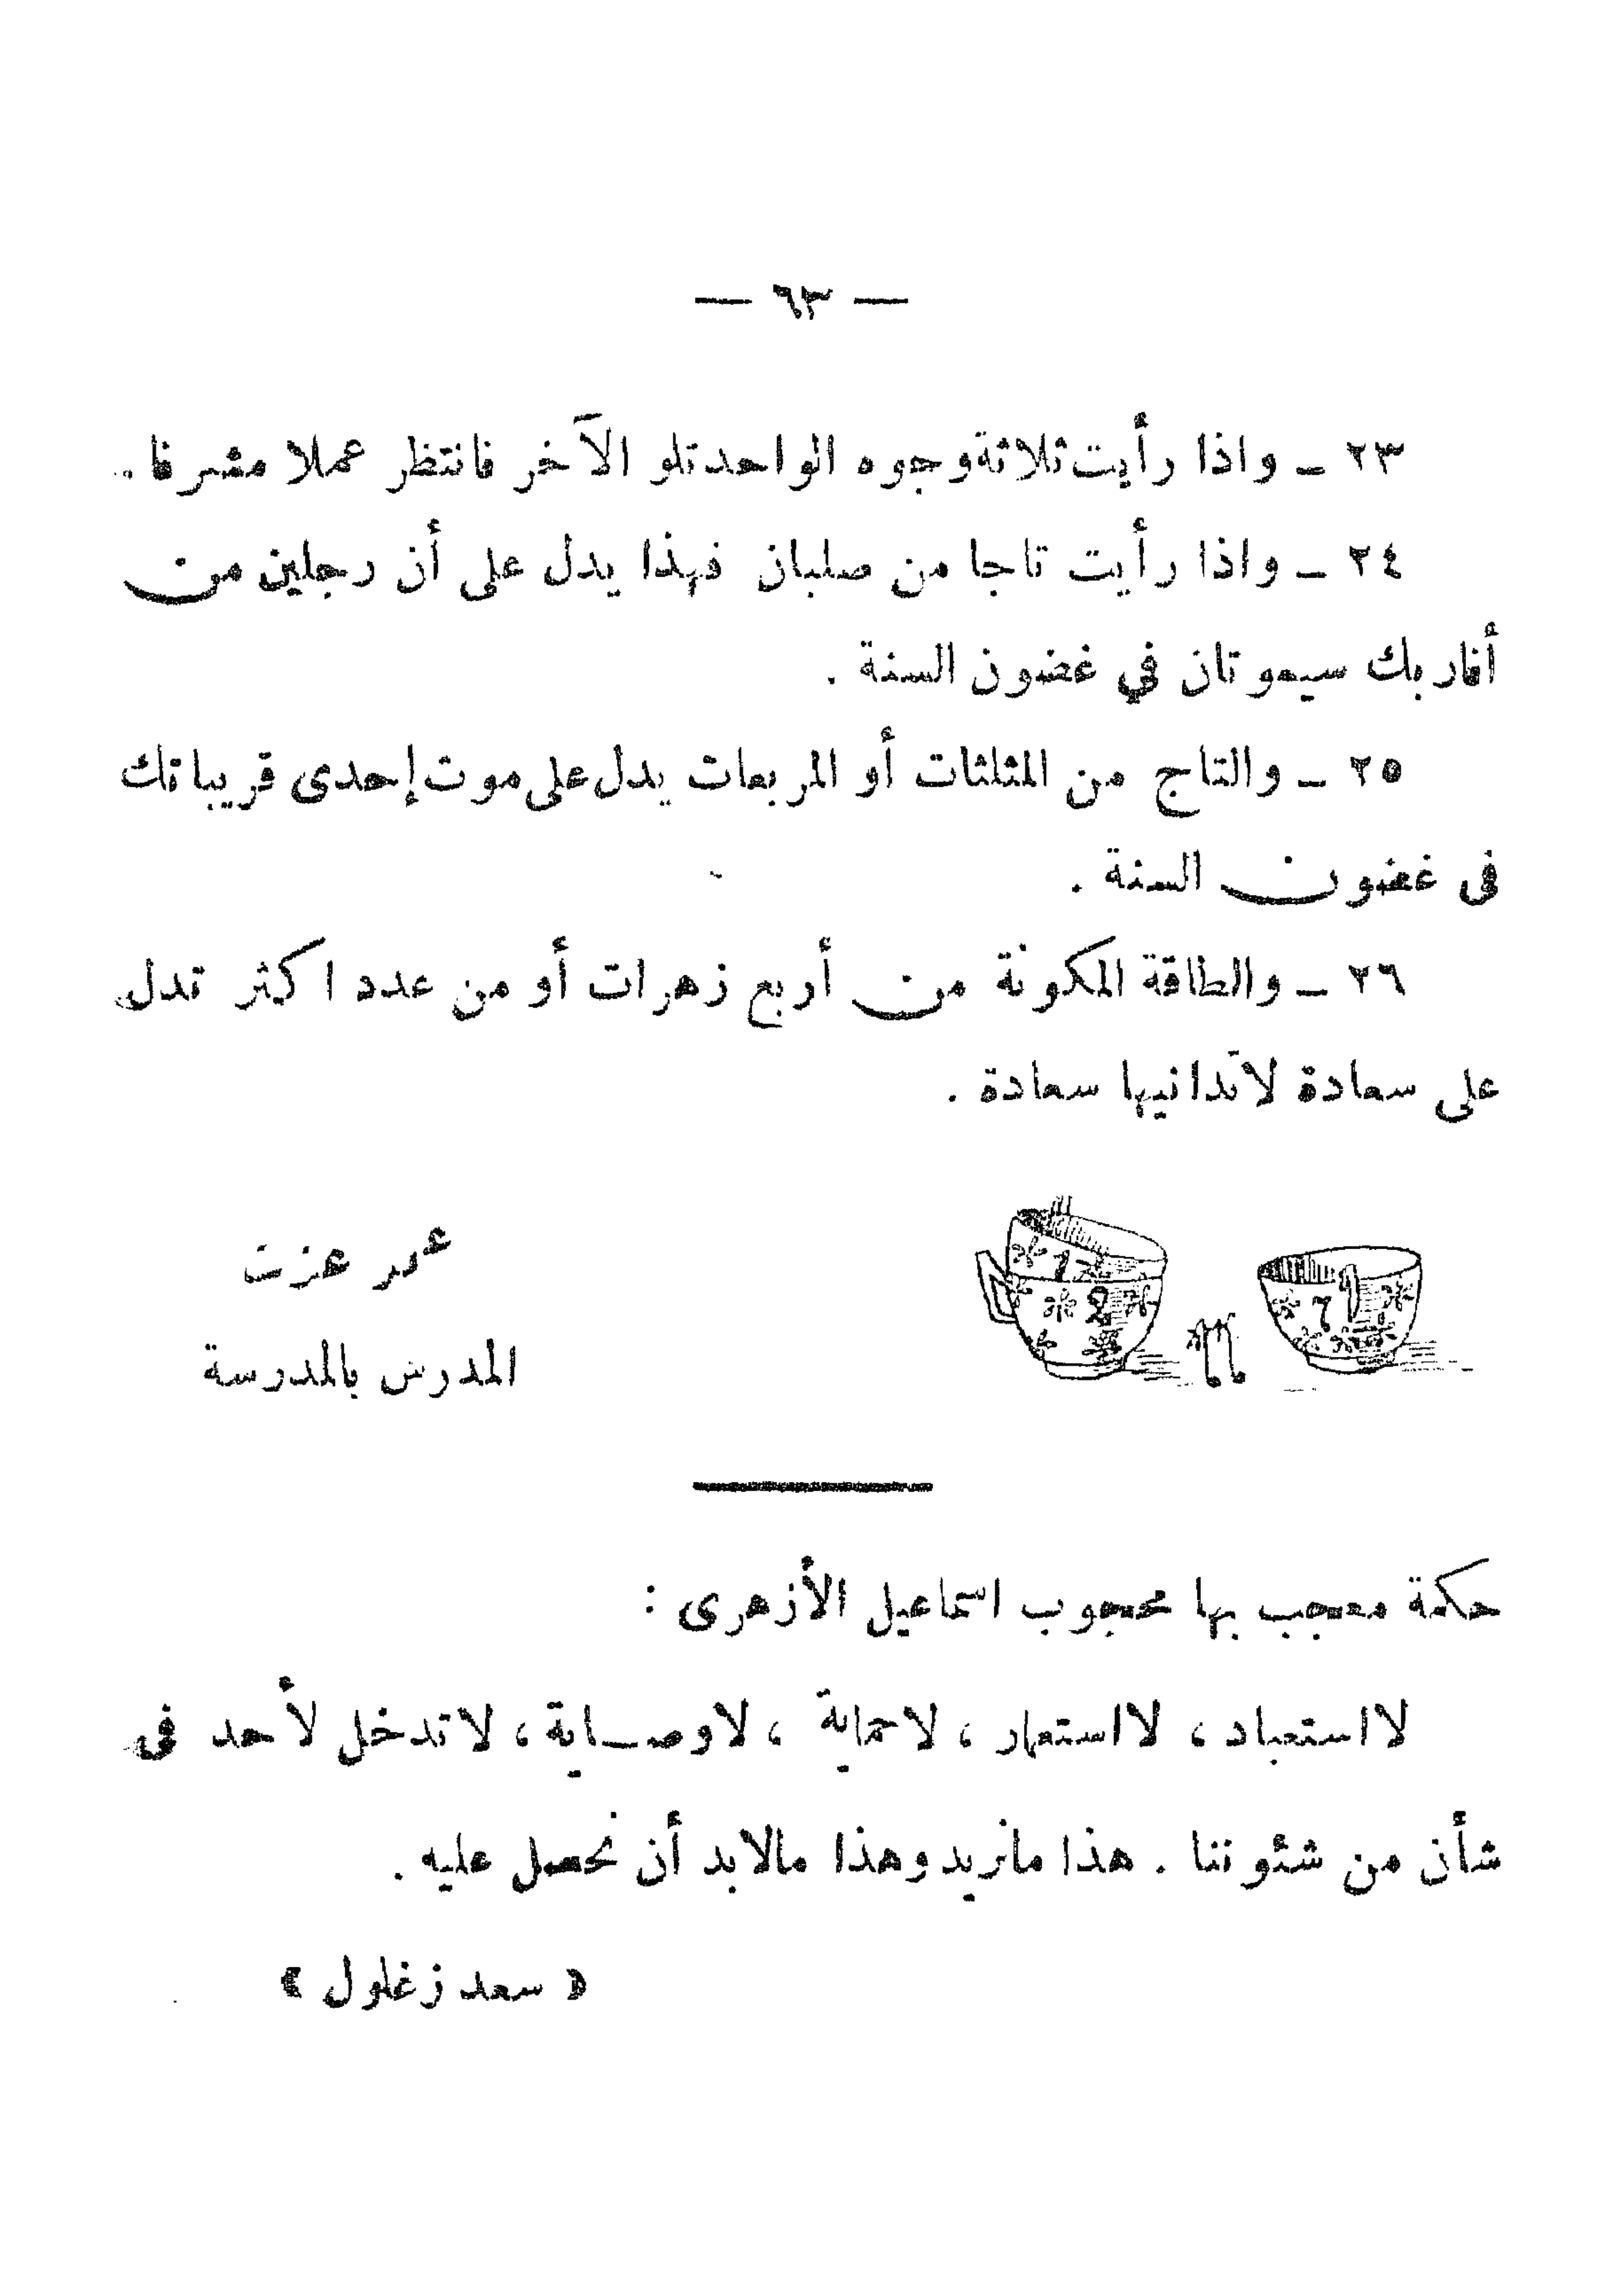 — ٦٣ —
٢٣ – واذا رأيت ثلاثة وجوه الواحد تلو الآخر فانتظر عملا مشرفا .
٢٤ – واذا رأيت تاجا من صلبان فهذا يدل على أن رجلين من
أقاربك سيموتان في غضون السنة .
٢٥ – والتاج من المثلثات أو المربعات يدل على موت إحدى قريباتك
فى غضون السنة .
٢٦ – والطاقة المكونة من أربع زهرات أو من عدد اكثر تدل
على سعادة لا تدانيها سعادة .
عزت
المدرس بالمدرسة
حكمة معجب بها محجوب اسماعيل الأزهرى :
لا استعباد ، لا استعمار ، لا حماية ، لا وصاية ، لا تدخل لأحد فى
شأن من شئوننا . هذا ما نريد وهذا مالا بد أن نحصل عليه .
« سعد زغلول »